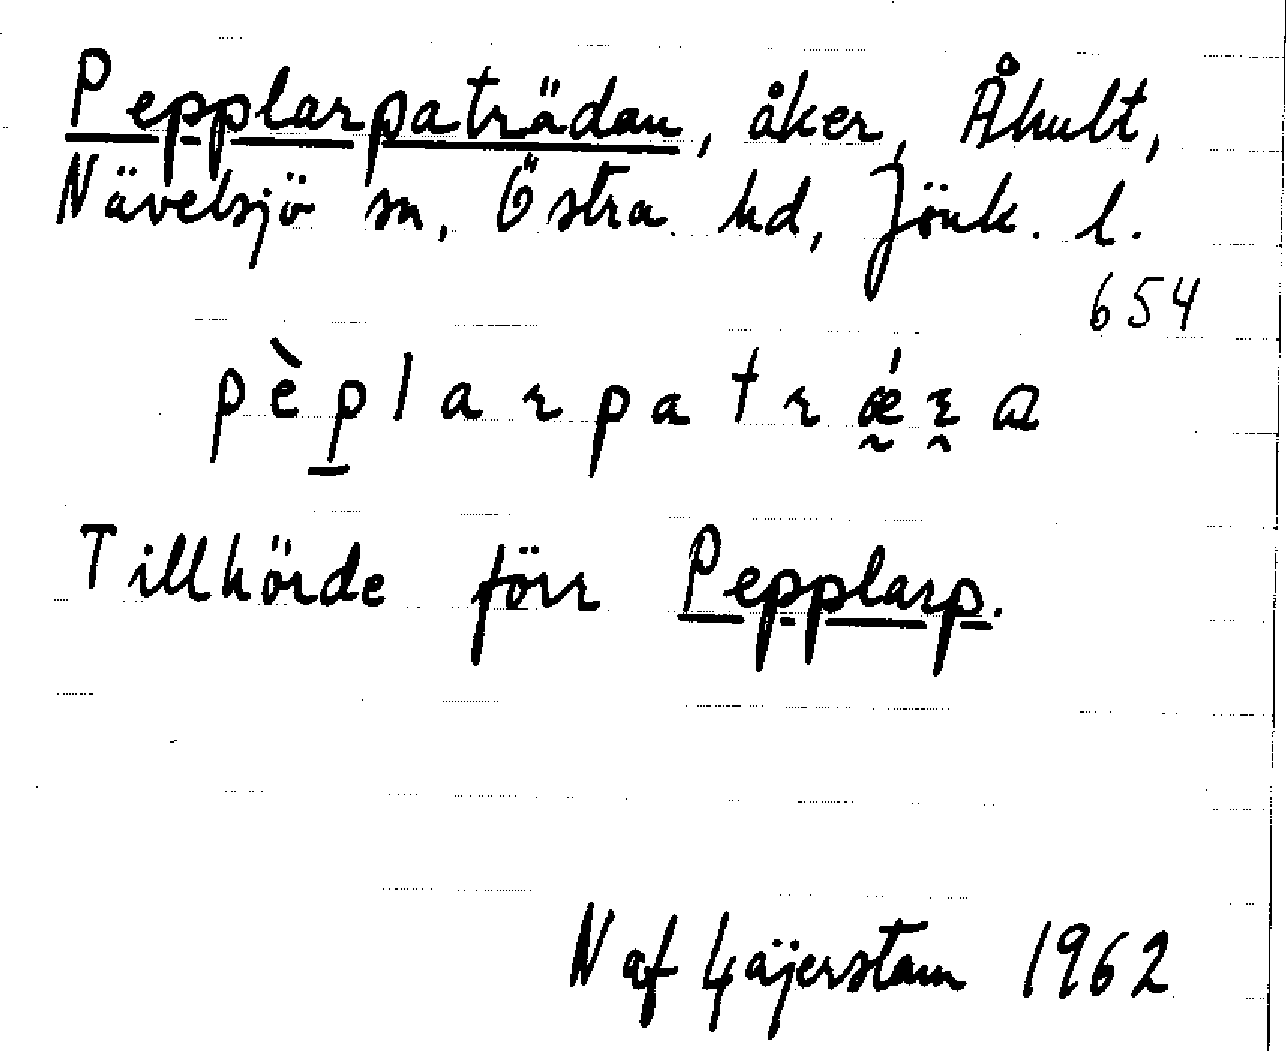 Pepplarpaträdan, åker, Åhult,
Nävelsjö sn, Östra hd, Jönk. l.
654
pèp̲larpatrǽ̰ɿ̭a
Tillhörde förr Pepplarp.
N af Gäjerstam 1962